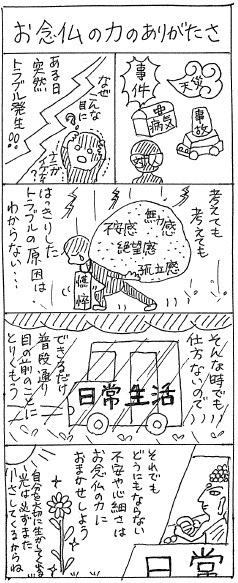 お念仏の力のありがたさ
天災
事件
病気
事故
対人
ある日
突然
トラブル発生!!
なぜ
こんな
目に?
考えても
考えても
無力感
不安感
絶望感
孤立感
はっきりした
トラブルの原因は
わからない…
そんな時でも
仕方ないので
できるだけ
普段通り
目の前のことに
とりくもう
日常生活
それでも
どうにもならない
不安や心細さは
お念仏の力に
おまかせしよう
自分を大切に
光は必ずまた
さしてくるからね
日常